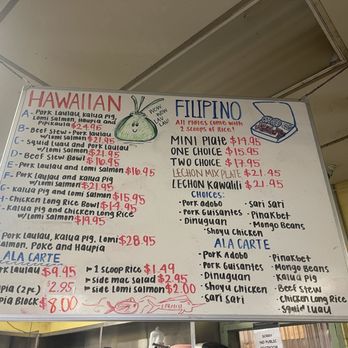 HAWAIIAN
A - Pork Laulau, Kalua Pig,
Lomi Salmon, Haupia and
Pipikaula $24.95
B - Beef Stew - Pork Laulau
w/Lomi Salmon $21.95
C - Squid Luau and Pork Laulau
w/Lomi Salmon $21.95
D - Beef Stew Bowl $16.95
E - Pork Laulau and Lomi Salmon $16.95
F - Pork Laulau and Kalua Pig
w/Lomi Salmon $21.95
G - Kalua Pig and Lomi Salmon $15.95
H - Chicken Long Rice Bowl $14.95
Kalua Pig and Chicken Long Rice
w/Lomi Salmon $19.95
Pork Laulau, Kalua Pig, Lomi $28.95
Salmon, Poke and Haupia
ALA CARTE
Pork Laulau $9.95
Haupia (2pc.) $2.95
Haupia Block $8.00
1 Scoop Rice $1.49
Side Mac Salad $2.95
Side Lomi Salmon $2.00
WOW
LAU
LAU!
FILIPINO
All Plates come with
2 Scoops of Rice!
MINI Plate $14.95
ONE CHOICE $15.95
TWO CHOICE $17.95
LECHON MIX PLATE $21.45
LECHON Kawalili $21.45
CHOICES:
Pork Adobo
Pork Guisantes
Dinuguan
Shoyu Chicken
Sari Sari
Pinakbet
Mongo Beans
ALA CARTE
Pork Adobo
Pork Guisantes
Dinuguan
Shoyu Chicken
Sari Sari
Pinakbet
Mongo Beans
Kalua Pig
Beef Stew
Chicken Long Rice
Squid Luau